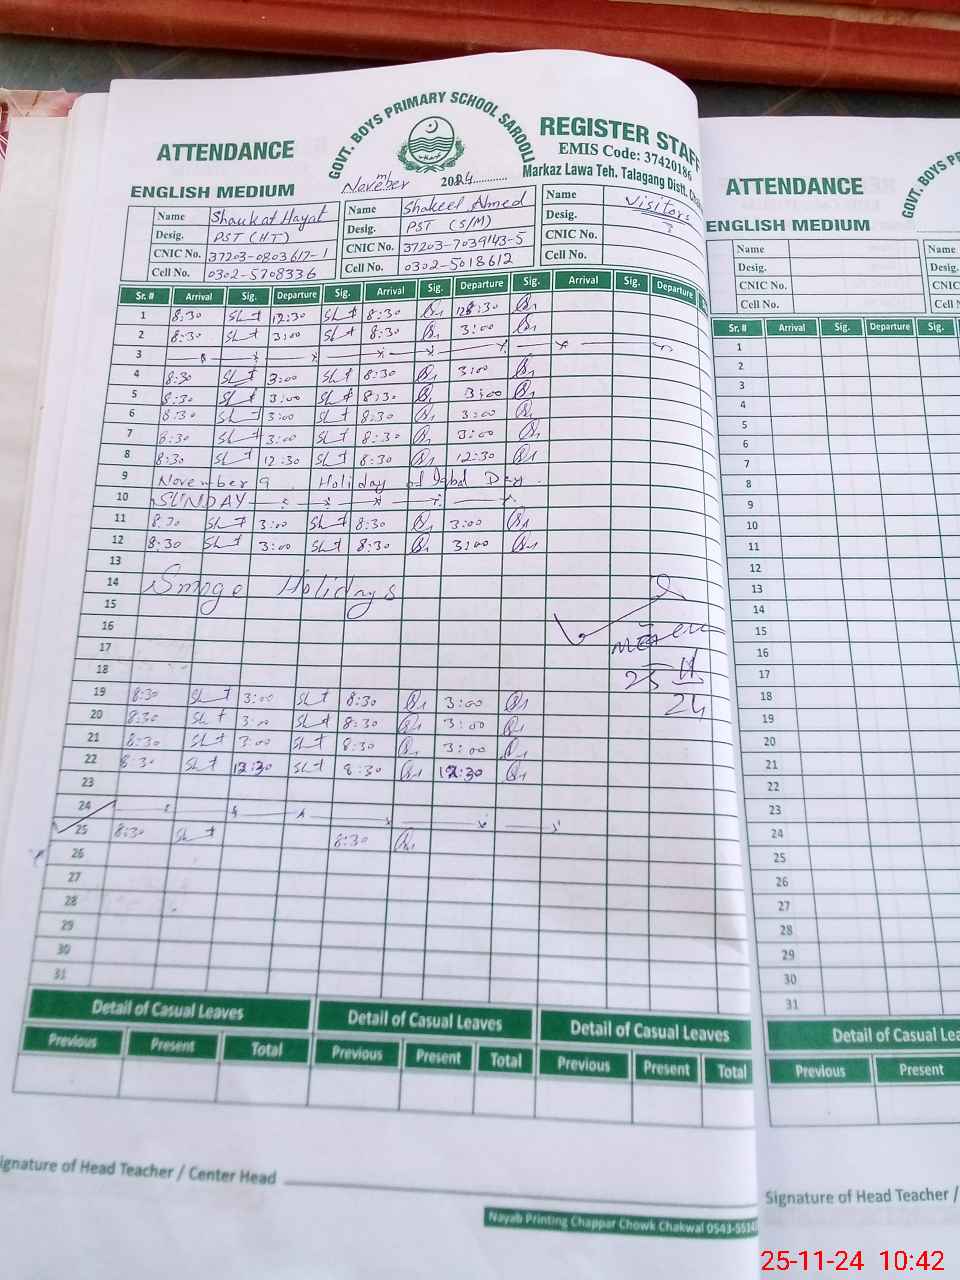 GOVT. BOYS PRIMARY SCHOOL SAROOLI
ATTENDANCE
REGISTER STAFF
EMIS Code: 37420186
ENGLISH MEDIUM
November 2024
Markaz Lawa Teh. Talagang Distt.
Name Shaukat Hayat Name Shakeel Ahmed Name Visitors
Desig. PST (HT) Desig. PST (S/M) Desig.
CNIC No. 37203-0803617-1 CNIC No. 37203-7039143-5 CNIC No.
Cell No. 0302-5708336 Cell No. 0302-5018612 Cell No.
Sr. # Arrival Sig. Departure Sig. Arrival Sig. Departure Sig. Arrival Sig. Departure
1 8:30 12:30 8:30 12:30
2 8:30 3:00 8:30 3:00
3
4 8:30 3:00 8:30 3:00
5 8:30 3:00 8:30 3:00
6 8:30 3:00 8:30 3:00
7 8:30 3:00 8:30 3:00
8 8:30 12:30 8:30 12:30
9 November 9 Holiday of Iqbal Day.
10 SUNDAY
11 8:30 3:00 8:30 3:00
12 8:30 3:00 8:30 3:00
13
14 Smoge Holidays
15
16
17
18
19 8:30 3:00 8:30 3:00
20 8:30 3:00 8:30 3:00
21 8:30 3:00 8:30 3:00
22 8:30 12:30 8:30 12:30
23
24
25 8:30 8:30
26
27
28
29
30
31
25 11
24
Detail of Casual Leaves Detail of Casual Leaves Detail of Casual Leaves
Previous Present Total Previous Present Total Previous Present Total
ignature of Head Teacher / Center Head
Nayab Printing Chappar Chowk Chakwal
ATTENDANCE
GOVT. BOYS
ENGLISH MEDIUM
Name Name
Desig. Desig.
CNIC No. CNIC
Cell No. Cell N
Sr. # Arrival Sig. Departure Sig.
1
2
3
4
5
6
7
8
9
10
11
12
13
14
15
16
17
18
19
20
21
22
23
24
25
26
27
28
29
30
31
Detail of Casual Lea
Previous Present
Signature of Head Teacher /
25-11-24 10:42